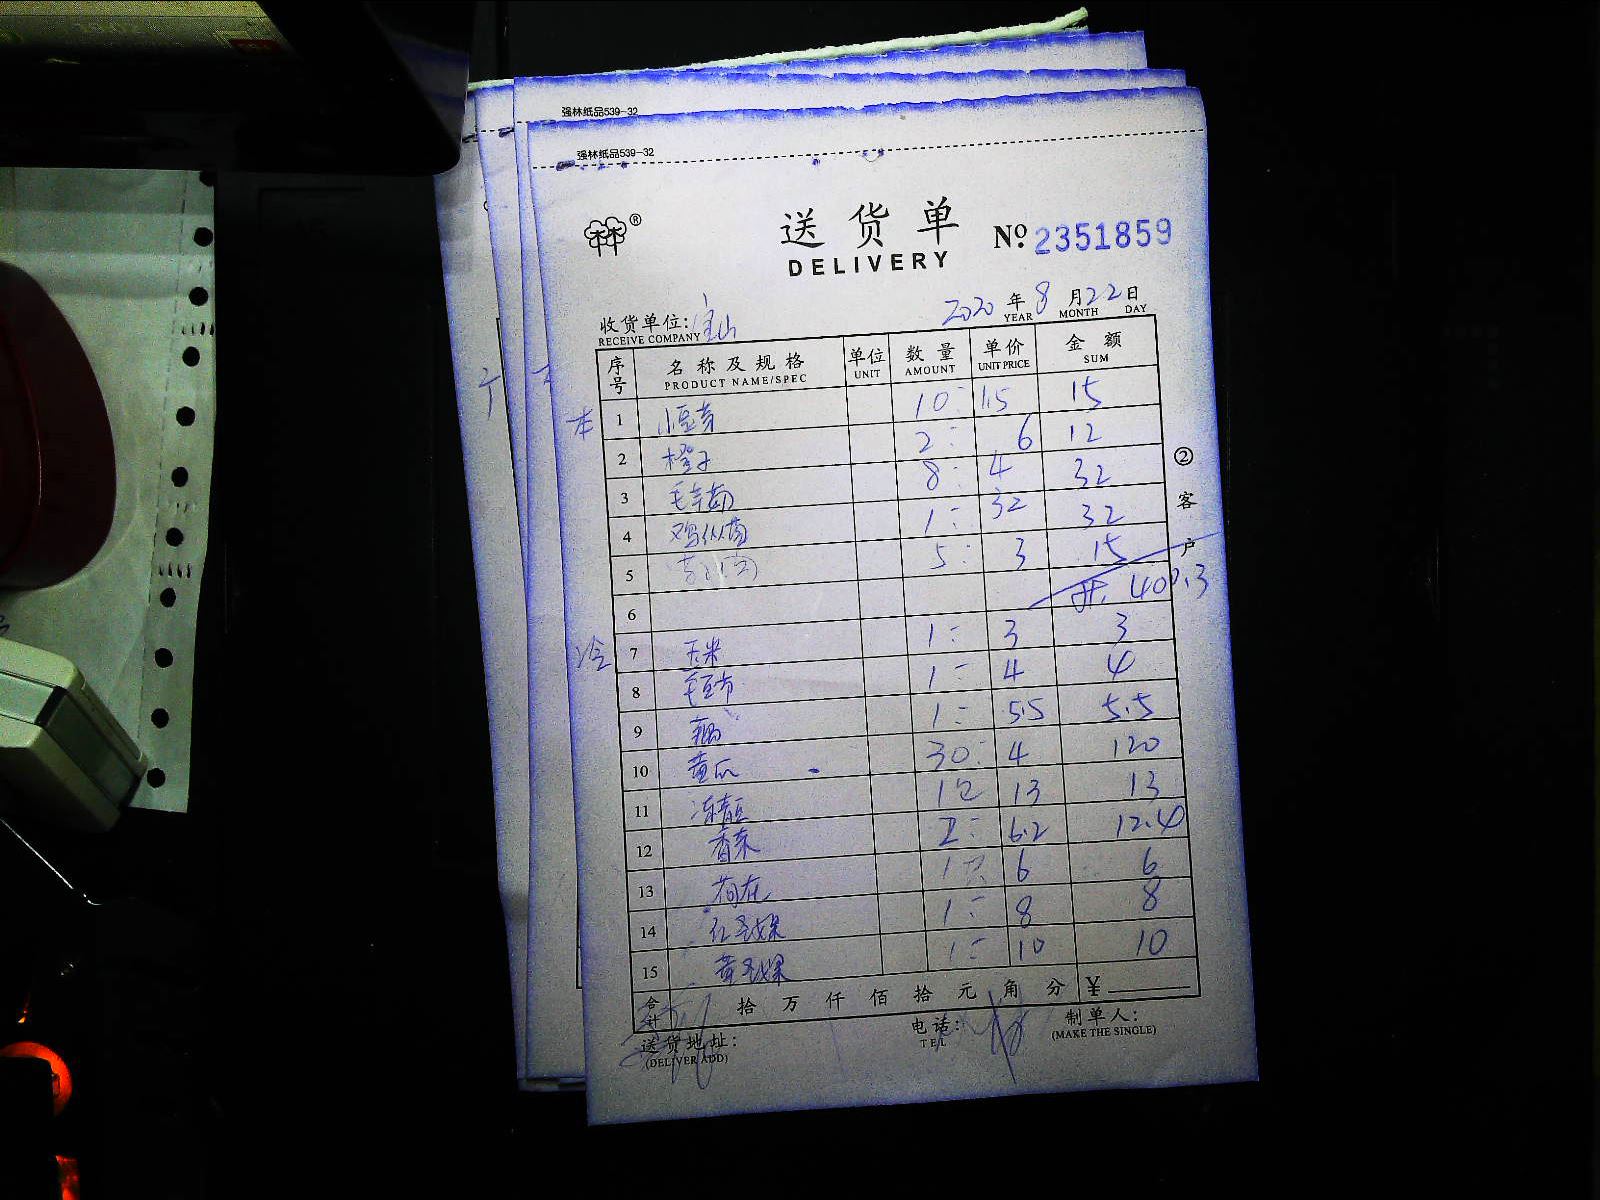 强林纸品539-32
强林纸品539-32
林林®
送货单 Nº 2351859
DELIVERY
2020 年 8 月 22 日
YEAR MONTH DAY
收货单位: 宝山
RECEIVE COMPANY
序号 名称及规格 单位 数量 单价 金额
PRODUCT NAME/SPEC UNIT AMOUNT UNIT PRICE SUM
本 1 小豆芽 10 1.5 15
2 橙子 2 6 12
3 毛羊菌 8 4 32
4 鸡枞菌 1 32 32
5 5 3 15
6 共 409.3
冷 7 玉米 1 3 3
8 毛豆节 1 4 4
9 藕 1 5.5 5.5
10 黄瓜 30 4 120
11 冻青豆 1包 13 13
12 香菜 2 6.2 12.4
13 1 6 6
14 红圣女果 1 8 8
15 黄圣女果 1 10 10
合计 拾 万 仟 佰 拾 元 角 分 ¥
送货地址: 电话: 制单人:
(DELIVER ADD) TEL (MAKE THE SINGLE)
② 客户